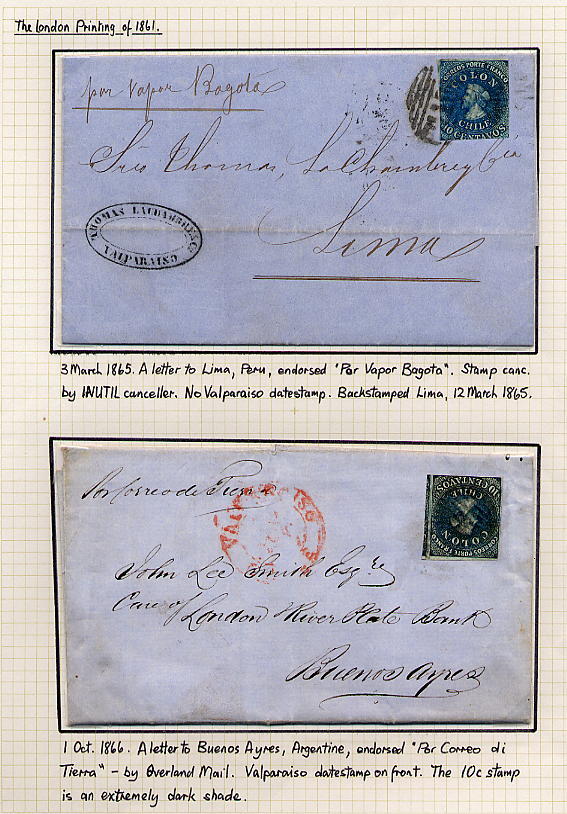 The London Printing of 1861.
por vapor Bogota
CORREOS PORTE FRANCO
COLON
CHILE
10 CENTAVOS
Sres Thomas, Lachambre y Cia
Lima
THOMAS LACHAMBRE & Co
VALPARAISO
3 March 1865. A letter to Lima, Peru, endorsed "Por Vapor Bagota". Stamp canc.
by INUTIL canceller. No Valparaiso datestamp. Backstamped Lima, 12 March 1865.
Por Correo de Tierra
VALPARAISO
CORREOS PORTE FRANCO
COLON
CHILE
10 CENTAVOS
John Lee Smith Esqre
Care of London & River Plate Bank
Buenos Ayres
1 Oct. 1866. A letter to Buenos Ayres, Argentine, endorsed "Por Correo di
Tierra" - by Overland Mail. Valparaiso datestamp on front. The 10c stamp
is an extremely dark shade.